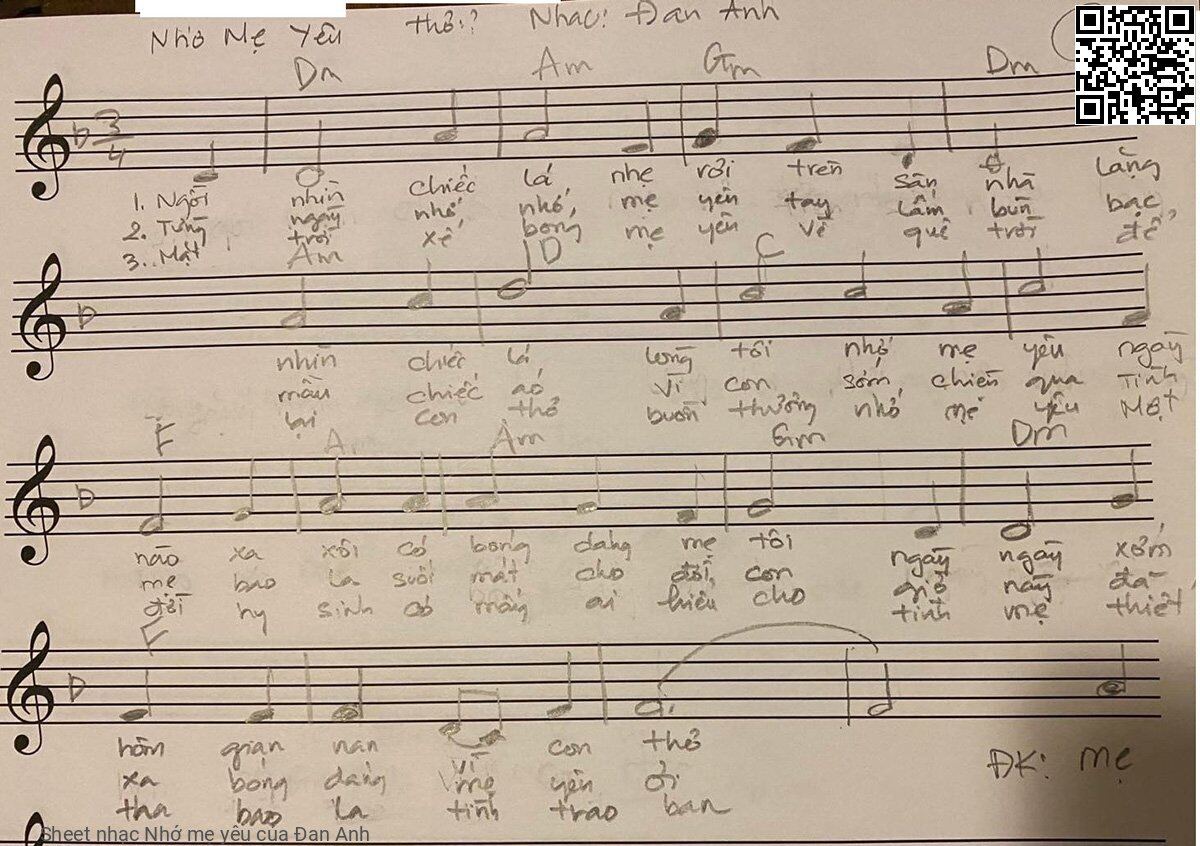 Nhớ Mẹ Yêu thơ:? Nhạc: Đan Anh
Dm Am Gm Dm
3/4
1. Ngồi nhìn chiếc lá nhẹ rơi trên sân nhà Lặng
2. Từng ngày nhớ, nhớ, mẹ yêu tay lấm bùn bạc
3. Mặt trời xế bóng mẹ yêu về quê trời để
Am D C
nhìn chiếc lá lòng tôi nhớ mẹ yêu ngày
mầu chiếc áo Vì con sớm, chiều qua Tình
lại con thơ buồn thương nhớ mẹ yêu Một
F A Am Gm Dm
nào xa xôi có bóng dáng mẹ tôi ngày ngày xớm
mẹ bao la suối mát cho đời, con giờ nầy đã
đời hy sinh có mấy ai hiểu cho tình mẹ thiết
F
hôm gian nan vì con thơ
xa bóng dáng mẹ yêu ơi
tha bao la tình trao ban
ĐK: Mẹ
Sheet nhạc Nhớ mẹ yêu của Đan Anh